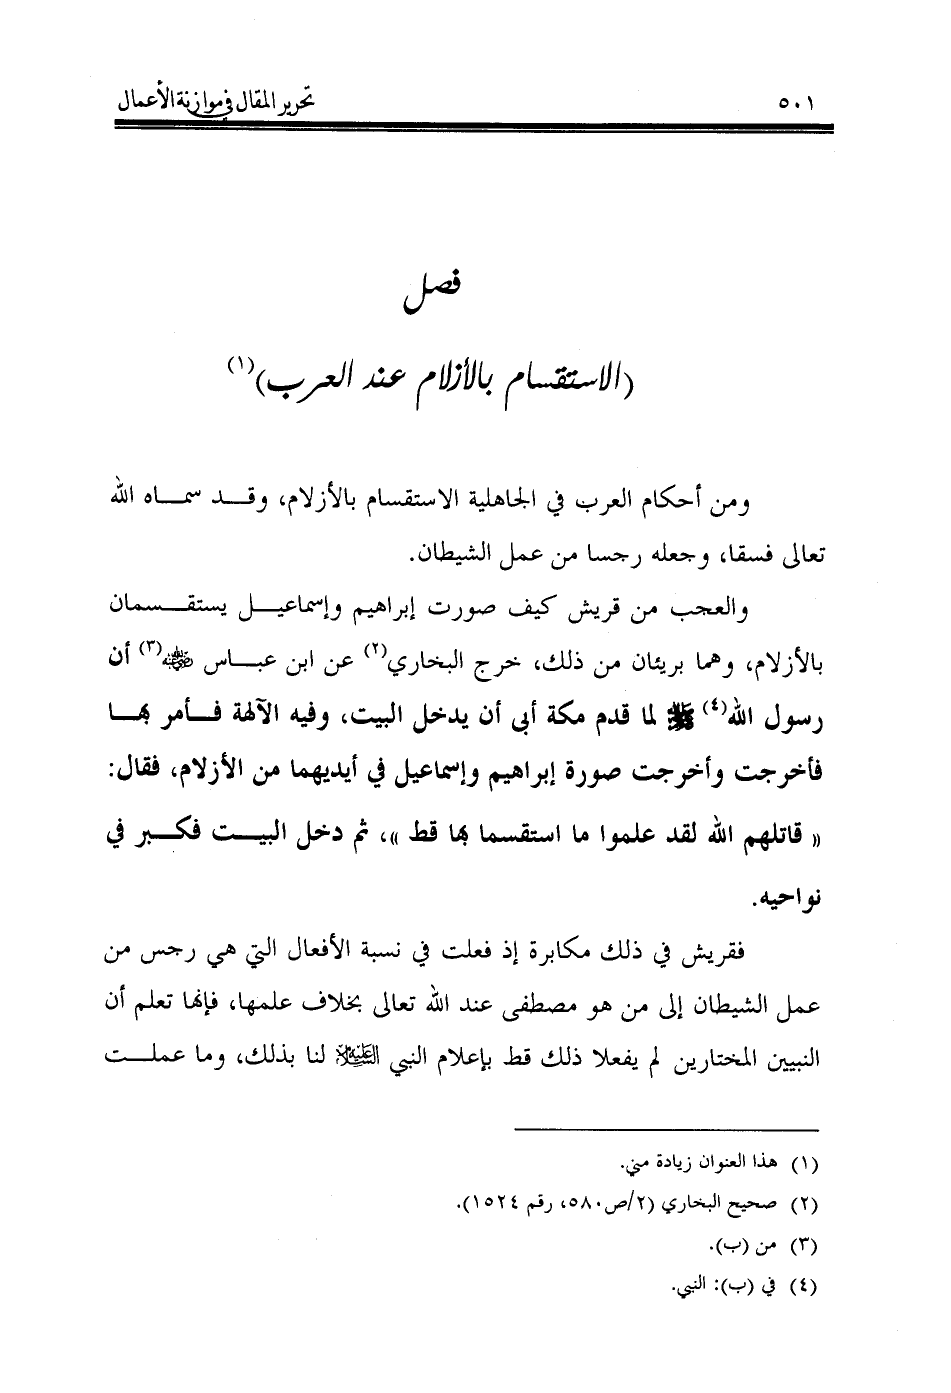 ٥٠١ تحرير المقال في موازنة الأعمال
فصل
(الاستقسام بالأزلام عند العرب)(١)
ومن أحكام العرب في الجاهلية الاستقسام بالأزلام، وقد سماه الله
تعالى فسقا، وجعله رجسا من عمل الشيطان.
والعجب من قريش كيف صورت إبراهيم وإسماعيل يستقسمان
بالأزلام، وهما بريئان من ذلك، خرج البخاري(٢) عن ابن عباس رضي الله عنه(٣) أن
رسول الله(٤) ﷺ لما قدم مكة أبى أن يدخل البيت، وفيه الآلهة فأمر بها
فأخرجت وأخرجت صورة إبراهيم وإسماعيل في أيديهما من الأزلام، فقال:
« قاتلهم الله لقد علموا ما استقسما بها قط »، ثم دخل البيت فكبر في
نواحيه.
فقريش في ذلك مكابرة إذ فعلت في نسبة الأفعال التي هي رجس من
عمل الشيطان إلى من هو مصطفى عند الله تعالى بخلاف علمها، فإنها تعلم أن
النبيين المختارين لم يفعلا ذلك قط بإعلام النبي عليه السلام لنا بذلك، وما عملت
(١) هذا العنوان زيادة مني.
(٢) صحيح البخاري (٢/ص٥٨٠، رقم ١٥٢٤).
(٣) من (ب).
(٤) في (ب): النبي.